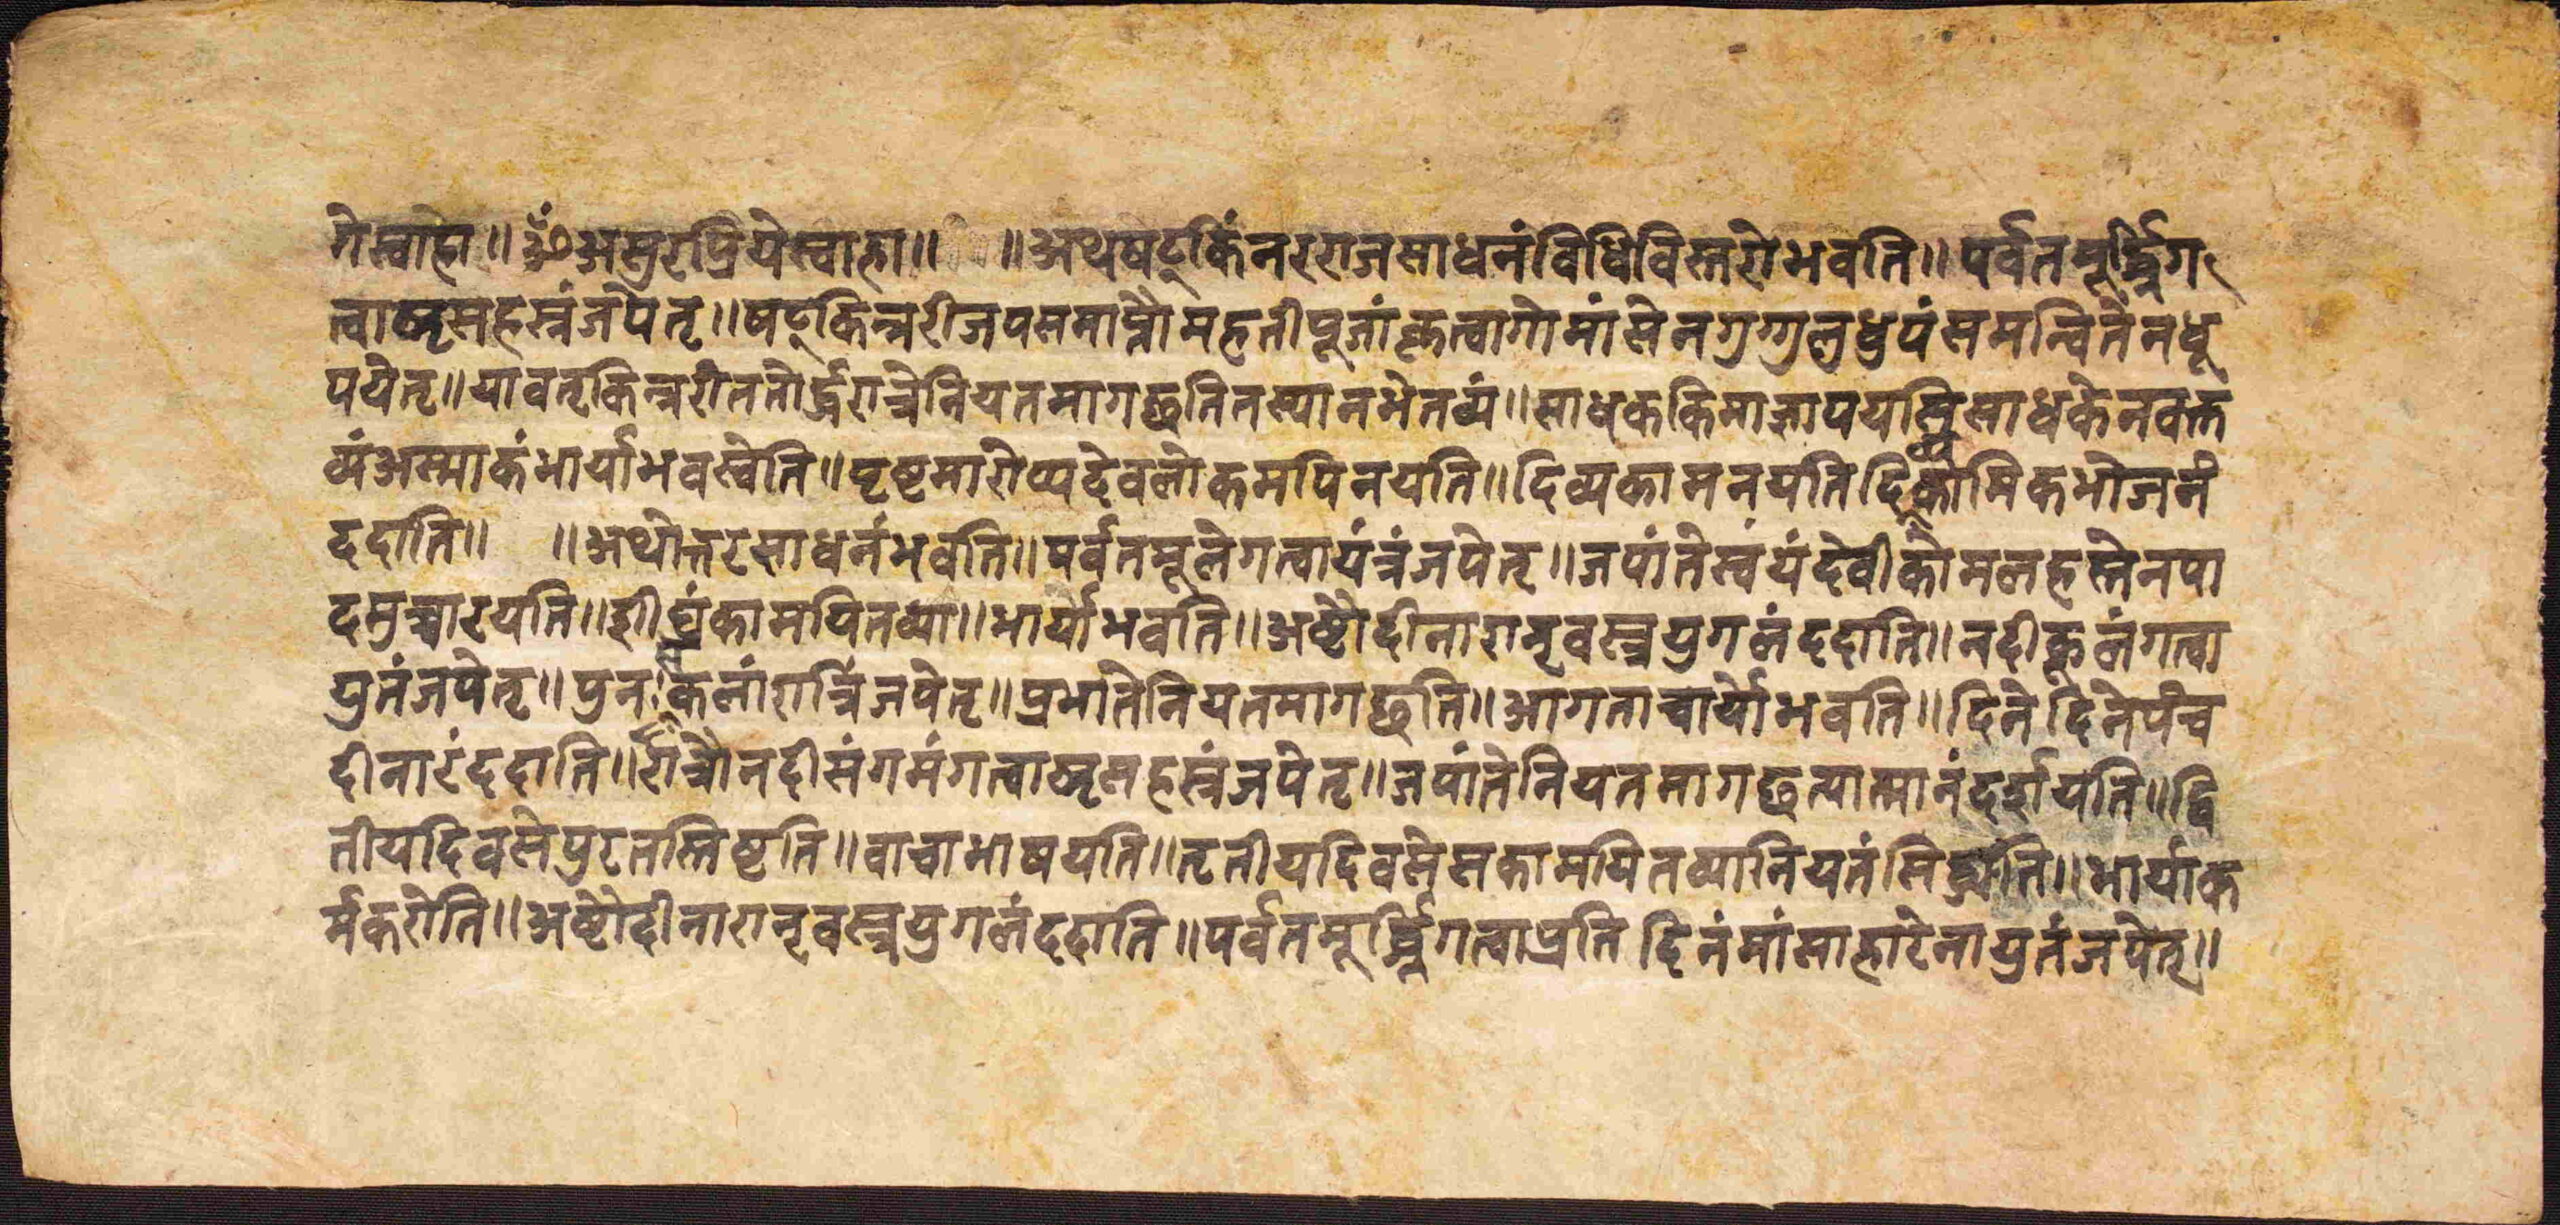 गेस्वाहा॥ ॐअसुरप्रियेस्वाहा॥ ॥अथषट्किंनरराजसाधनंविधिविस्तरोभवति॥पर्वतमूर्द्ध्निग
त्वाष्टसहस्रंजपेत्॥षट्किन्नरीजपसमाप्तौमहतीपूजांकृत्वागोमांसेनगुग्गुलुधुपंसमन्वितेनधू
पयेत्॥यावत्किन्नरीततोर्द्धरात्रेनियतमागछतितस्यानभेतव्यं॥साधककिमाज्ञापयसिसाधकेनवक्त
व्यंअस्माकंभार्याभवस्वेति॥पृष्टमारोप्यदेवलोकमपिनयति॥दिव्यकामनयतिदिव्यकामिकभोजनं
ददाति॥ ॥अथोत्तरसाधनंभवति॥पर्वतमूलेगत्वायंत्रंजपेत्॥जपांतेस्वंयंदेवीकोमलहस्तेनपा
दमुच्चारयति॥शीघ्रंकामयितव्या॥भार्याभवति॥अष्टौदीनारान्वस्त्रयुगलंददाति॥नदीकूलंगत्वा
युतंजपेत्॥पुनःसकलांरात्रिंजपेत्॥प्रभातेनियतमागछति॥आगताचार्याभवति॥दिनेदिनेपंच
दीनारंददाति॥रात्रौनदीसंगमंगत्वाष्टसहस्रंजपेत्॥जपांतेनियतमागछत्यात्मानंदर्शयति॥द्वि
तीयदिवसेपुरतस्तिष्टति॥वाचाभाषयति॥तृतीयदिवसेसकामयितव्यानियतंसिद्ध्यति॥भार्याक
र्मकरोति॥अष्टौदीनारान्वस्त्रयुगलंददाति॥पर्वतमूर्द्ध्निगत्वाप्रतिदिनंमांसाहारेनायुतंजपेत्॥